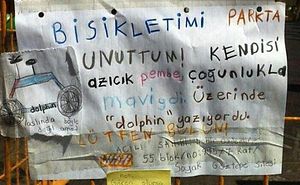 BISIKLETIMI PARKTA
UNUTTUM! KENDİSİ
azıcık pembe, çoğunlukla
mavi ydi. Üzerinde
"dolphin" yazıyordu.
LÜTFEN BULUN!
dolphin
aslında böyle
55. blok/no: